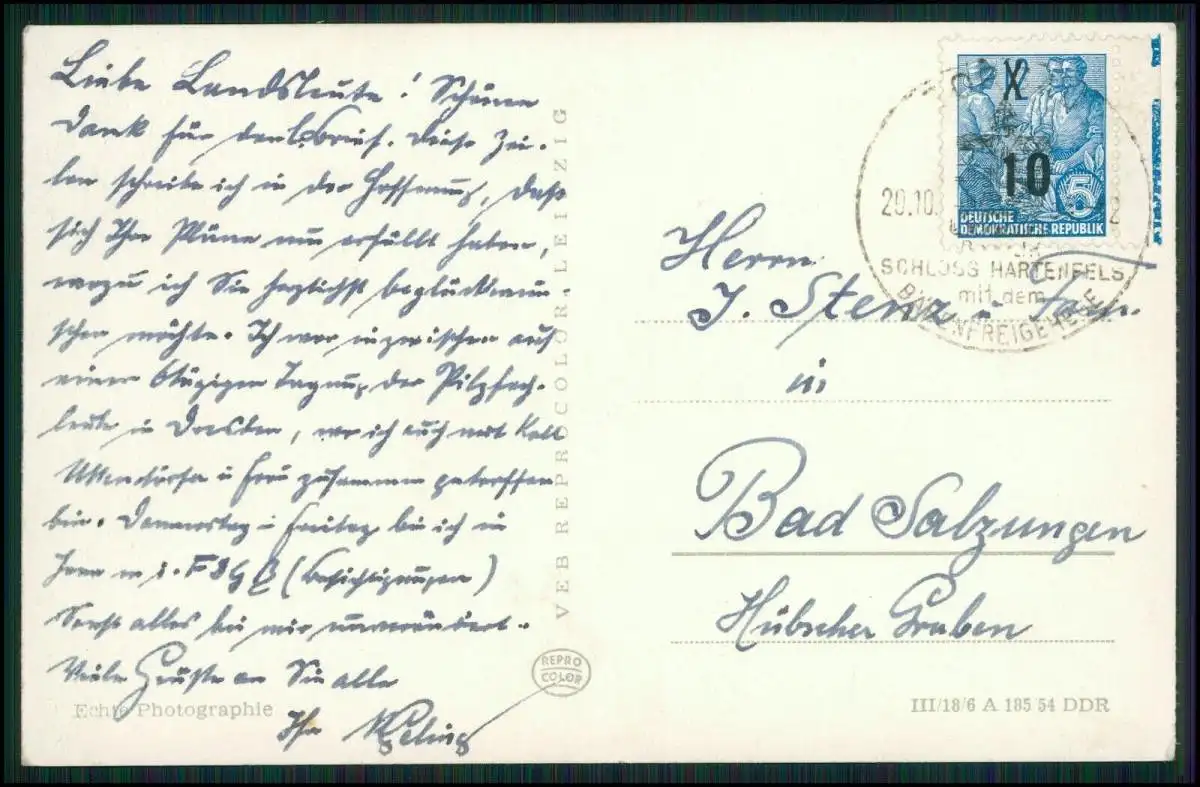 Liebe Landsleute! Schönen
Dank für den l. Brief. Diese Zei-
len schreibe ich in der Hoffnung, daß
sich Ihre Pläne nun erfüllt haben,
wozu ich Sie herzlichst beglückwün-
schen möchte. Ich war inzwischen auf
einer tägigen Tagung der Pilzfach-
leute in Dresden, wo ich auch mit Koll.
u Frau zusammen getroffen
bin. Donnerstag u Freitag bin ich in
Jena m d. (Besichtigungen)
Sonst alles bei mir unverändert.
Viele Grüße an Sie alle
Ihr
Echte Photographie
VEB REPROCOLOR LEIPZIG
REPRO
COLOR
10
5
DEUTSCHE
DEMOKRATISCHE REPUBLIK
20.10.
SCHLOSS HARTENFELS
mit dem
BÄRENFREIGEHEGE
Herrn
J. Stenz u. Fam.
in
Bad Salzungen
Hübscher Graben
III/18/6 A 185/54 DDR